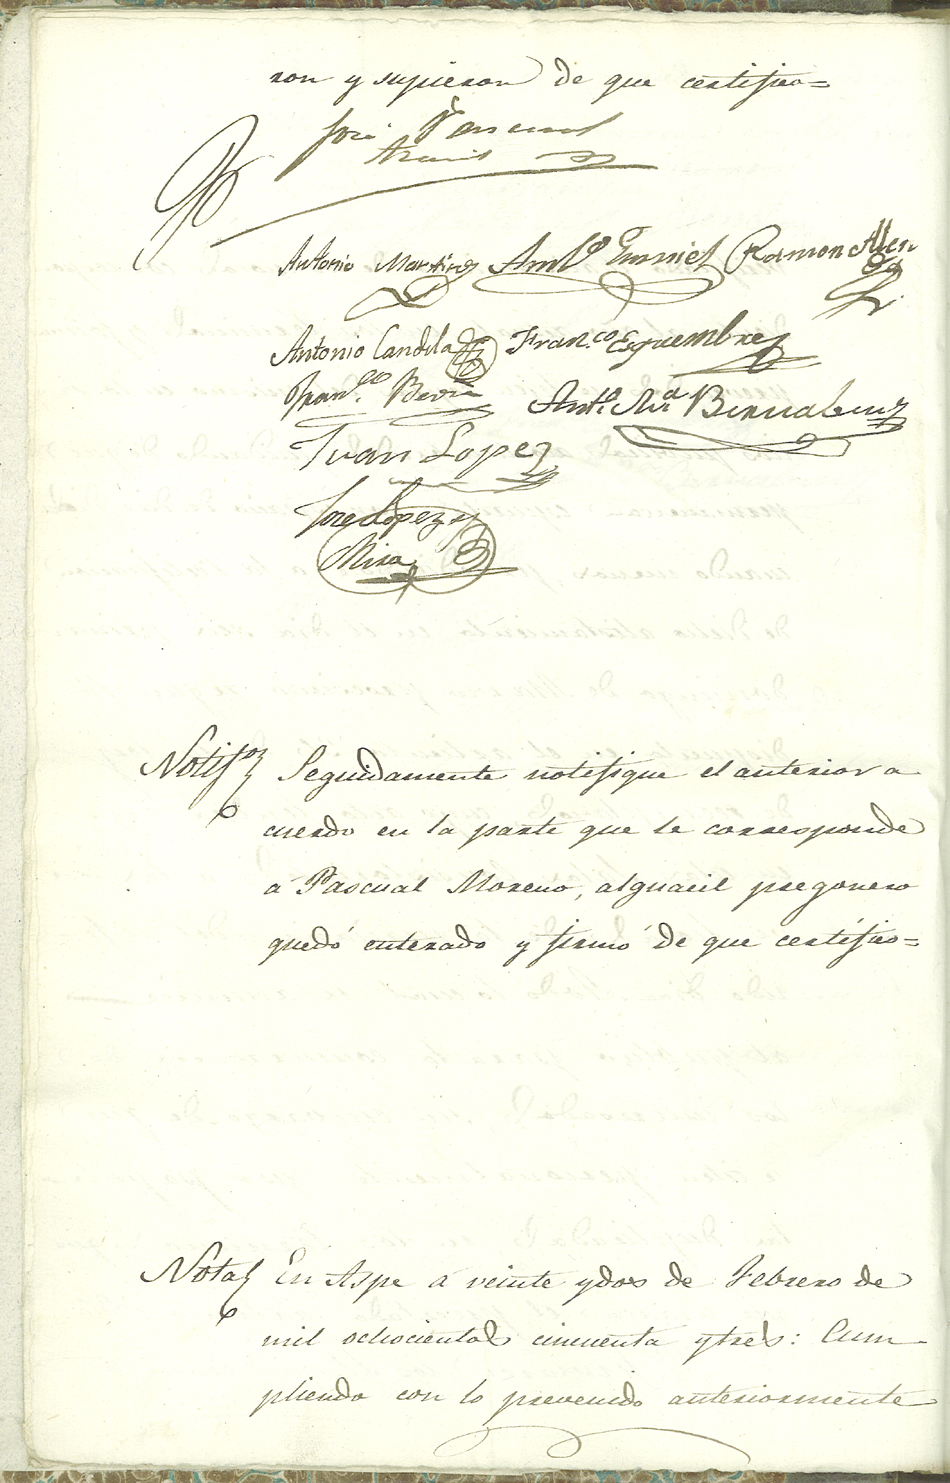 ron y supieron de que certifico=
José Pascual
Antonio Martinez Ant.º Ramon Alen
Antonio Candela Fran.co Esquembre
Fran.co Ant.º M.a Bernabeu
Juan Lopez
Jose Lopez y
Mira
Notif.on Seguidamente notifique el anterior a
cuerdo en la parte que le corresponde
á Pascual Moreno, alguacil pregonero
quedó enterado y firmó de que certifico=
Nota En Aspe á veinte y dos de Febrero de
mil ochocientos cincuenta y tres: Cum-
pliendo con lo prevenido anteriormente